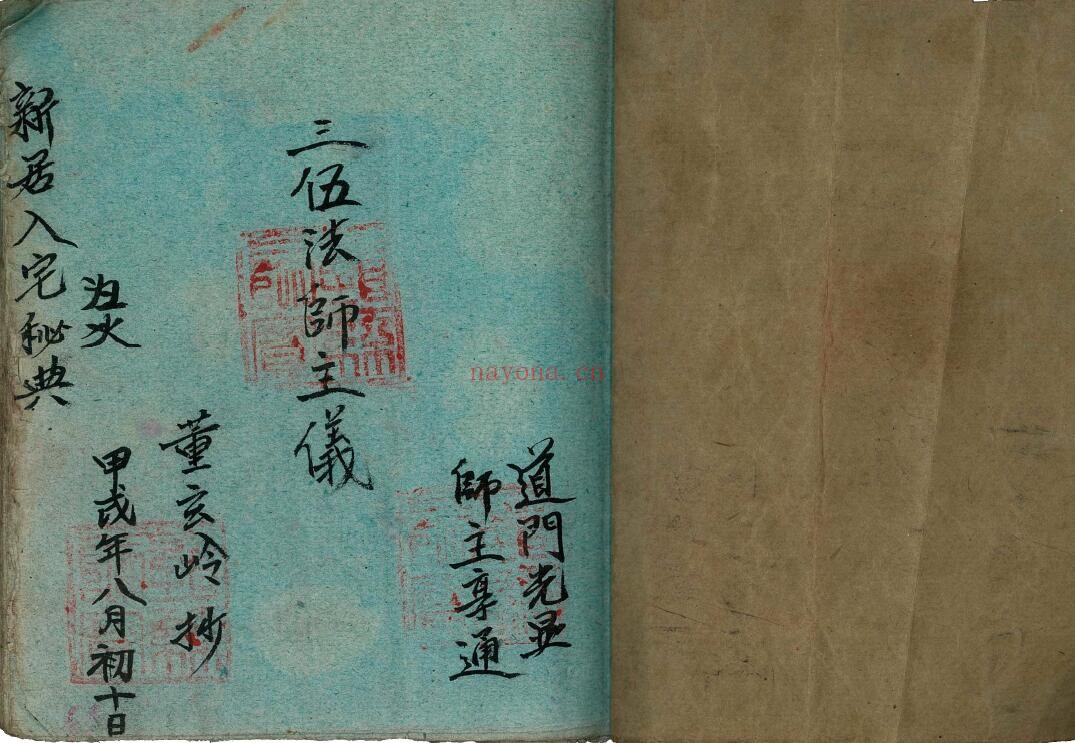 道門光显
師主享通
三伍法師主儀
董玄岭抄
甲戌年八月初十日
新居入宅秘典
nayona.cn